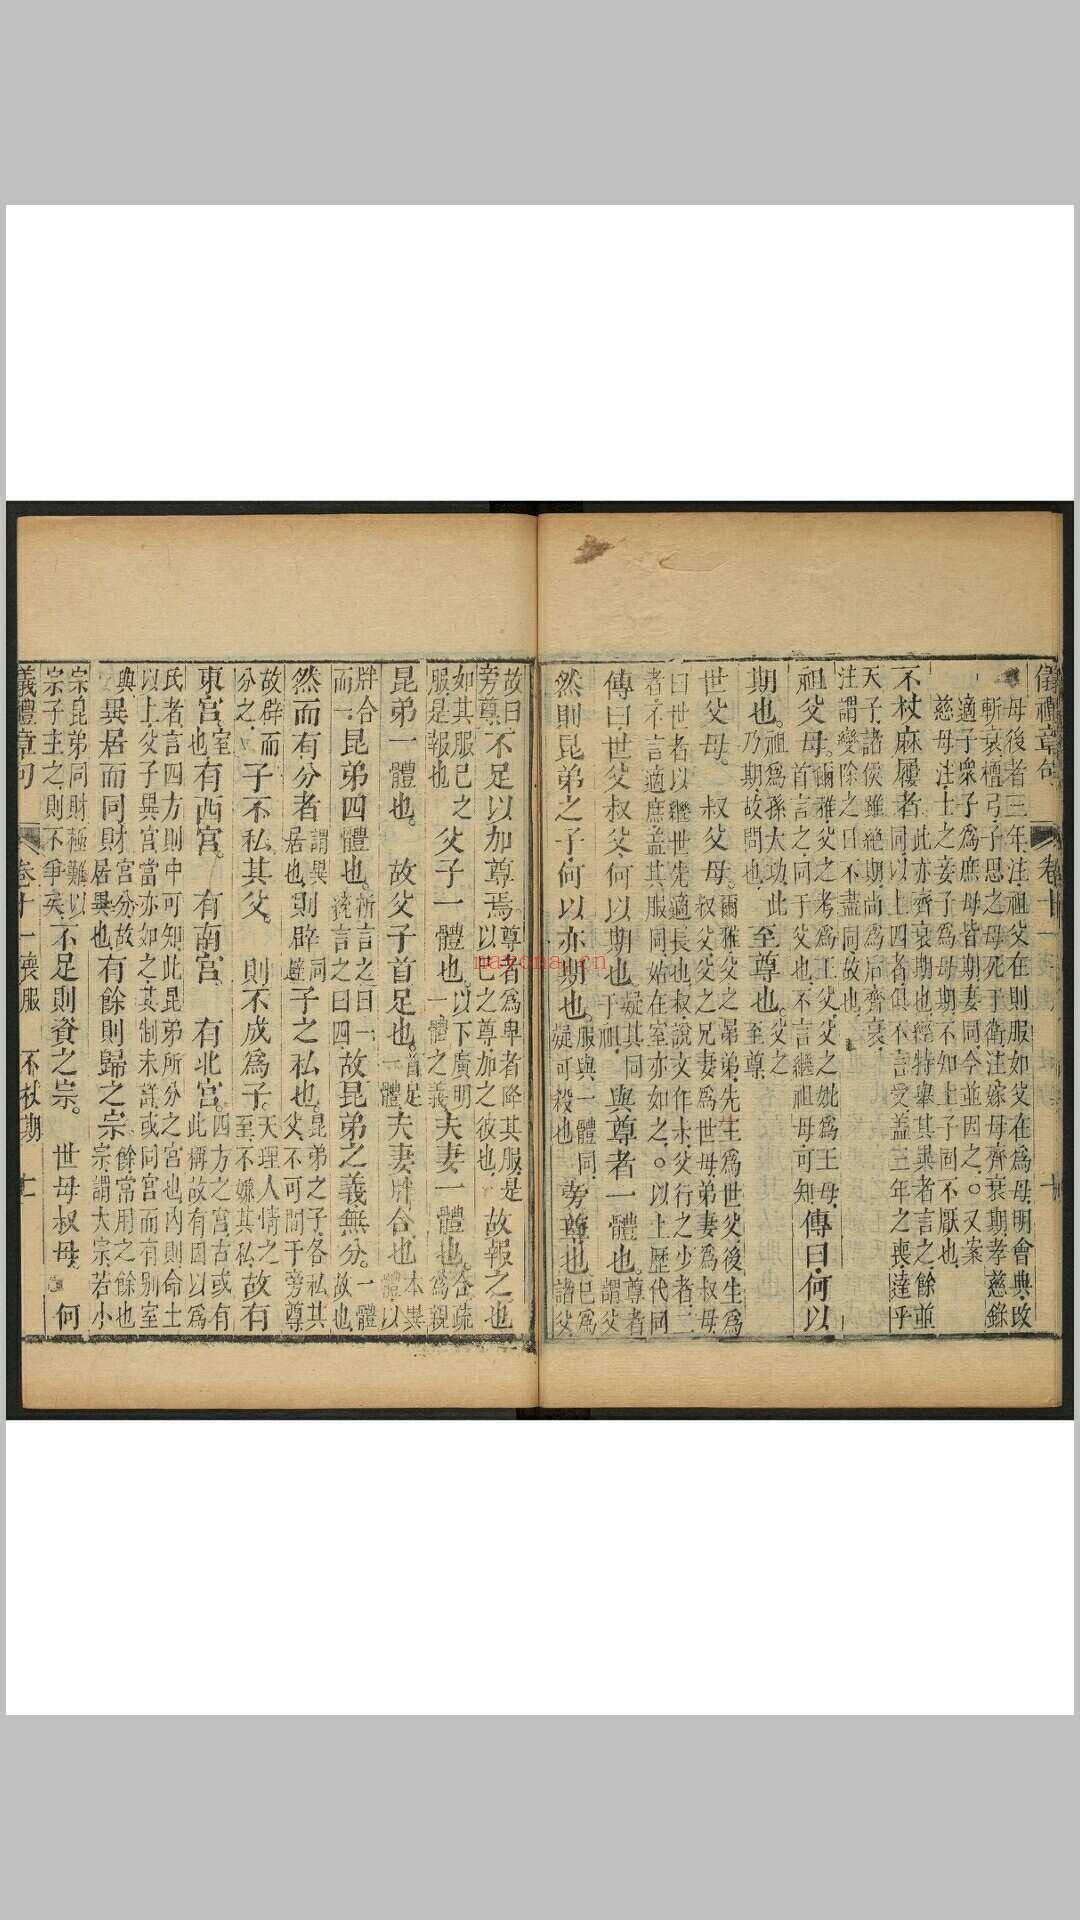 儀禮章句 卷十一
母後者三年注祖父在則服如父在爲母明會典改
斬衰檀弓子思之母死于衛注嫁母齊衰期孝慈錄
適子衆子爲庶母皆期妻同今並因之○又案
慈母注士之妾子爲母期不知上子固不厭也
不杖麻屨者此亦齊衰期也經特舉其異者言之餘並
同以上四者俱不言受蓋三年之喪達乎
天子諸侯雖絶期尚爲后齊衰
注謂變除之日不盡同故也
祖父母爾雅父之考爲王父父之妣爲王母
首言之同于父也不言繼祖母可知傳曰何以
期也祖爲孫大功此
乃期故問也至尊也父之
至尊
世父母叔父母爾雅父之晜弟先生爲世父後生爲
叔父父之兄妻爲世母弟妻爲叔母
曰世者以繼世先適長也叔說文作尗父行之少者二
者不言適庶蓋其服同姑在室亦如之○以上歷代同
傳曰世父叔父何以期也疑其同
于祖與尊者一體也尊者
謂父
然則昆弟之子何以亦期也服與一體同
疑可殺也旁尊也諸父
已爲
故曰
旁尊不足以加尊焉尊者爲卑者降其服是
以己之尊加之彼也故報之也
如其服己之
服是報也父子一體也以下廣明
一體之義夫妻一體也合疏
爲親
昆弟一體也故父子首足也首足
一體夫妻牉合也本異
體以
牉合
而一昆弟四體也析言之曰一
渾言之曰四故昆弟之義無分一體
故也
然而有分者謂異
居也則辟同
避子之私也昆弟之子各私其
父不可間于旁尊
故辟而
分之子不私其父則不成爲子天理人情之
至不嫌其私故有
東宮室
也有西宮有南宮有北宮四方之宮古或有
此稱故有因以爲
氏者言四方則中可知此昆弟所分之宮也內則命士
以上父子異宮當亦如之其制未詳或同宮而有别室
與異居而同財宮分故
居異也有餘則歸之宗餘常用之餘也
宗謂大宗若小
宗昆弟同財極難以
宗子主之則不爭矣不足則資之宗世母叔母何
儀禮章句 卷十一喪服 不杖期